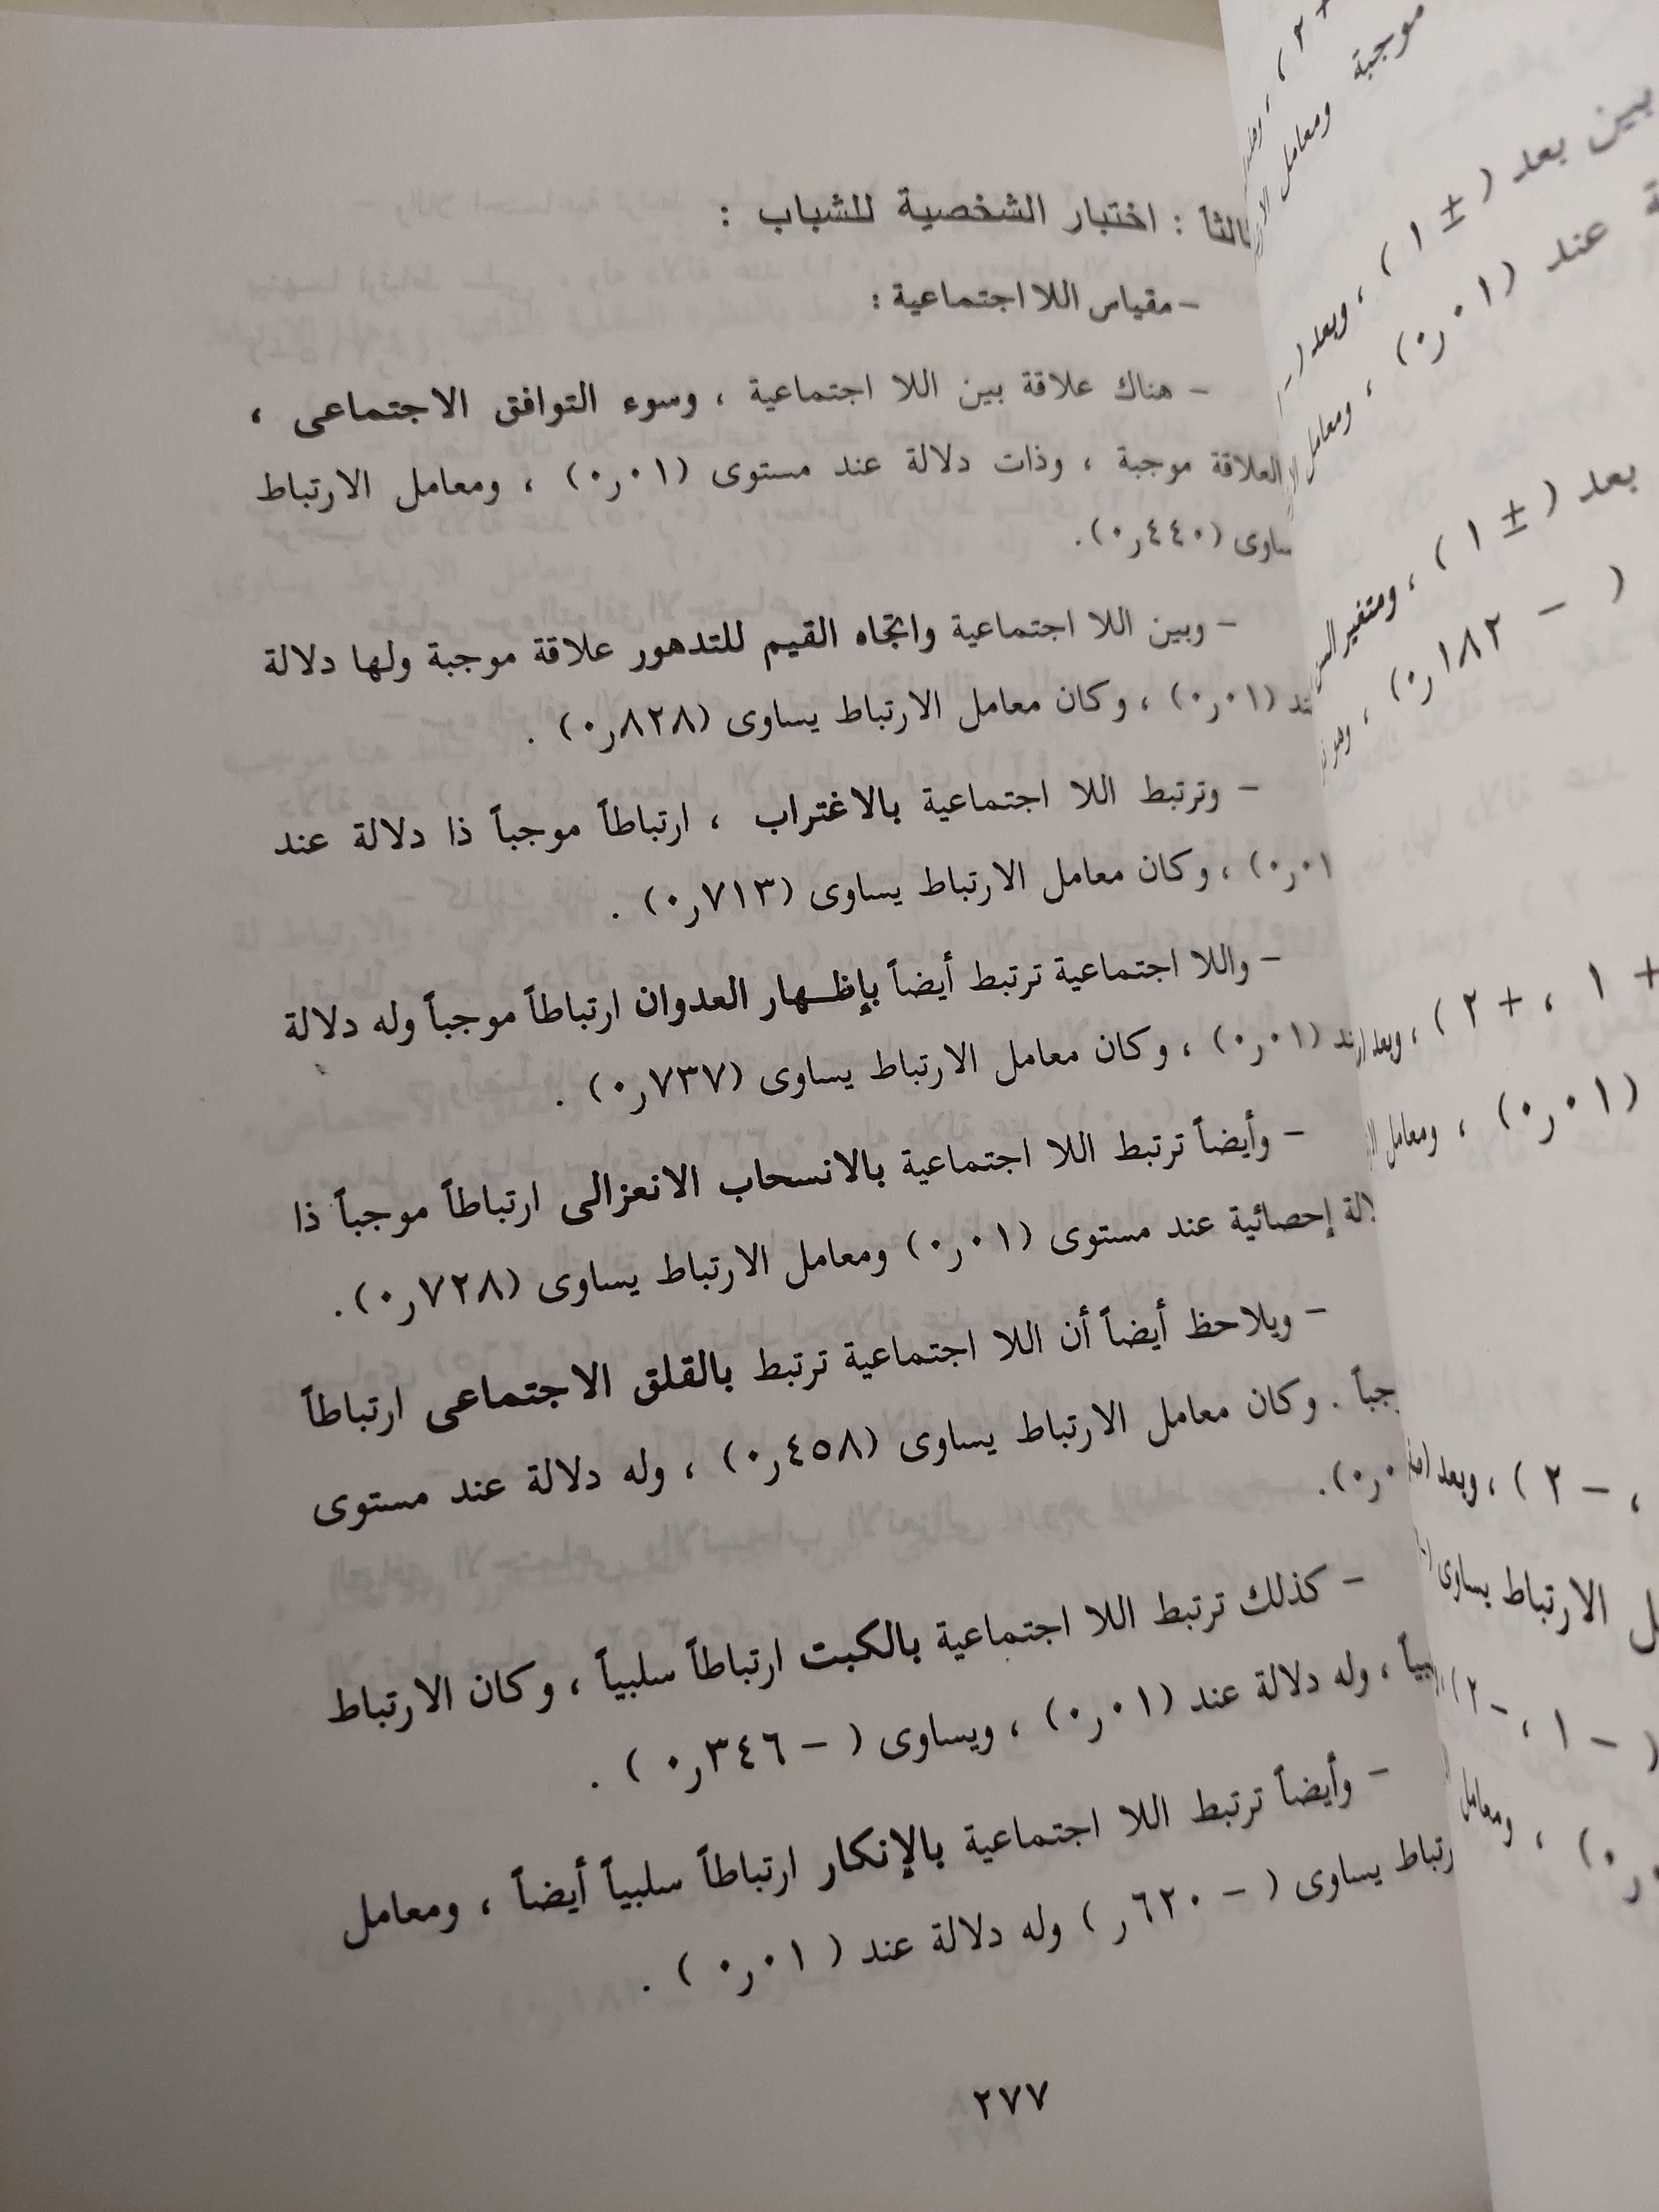 : اختبار الشخصية للشباب :
– مقياس اللا اجتماعية :
– هناك علاقة بين اللا اجتماعية ، وسوء التوافق الاجتماعى ،
العلاقة موجبة ، وذات دلالة عند مستوى (٠١ر٠) ، ومعامل الارتباط
(٤٤٠ر٠).
– وبين اللا اجتماعية واتجاه القيم للتدهور علاقة موجبة ولها دلالة
(٠١ر٠) ، وكان معامل الارتباط يساوى (٨٢٨ر٠) .
– وترتبط اللا اجتماعية بالاغتراب ، ارتباطاً موجباً ذا دلالة عند
٠١ر٠) ، وكان معامل الارتباط يساوى (٧١٣ر٠) .
– واللا اجتماعية ترتبط أيضاً بإظهار العدوان ارتباطاً موجباً وله دلالة
(٠١ر٠) ، وكان معامل الارتباط يساوى (٧٣٧ر٠) .
– وأيضاً ترتبط اللا اجتماعية بالانسحاب الانعزالى ارتباطاً موجباً ذا
إحصائية عند مستوى (٠١ر٠) ومعامل الارتباط يساوى (٧٢٨ر٠).
– ويلاحظ أيضاً أن اللا اجتماعية ترتبط بالقلق الاجتماعى ارتباطاً
. وكان معامل الارتباط يساوى (٤٥٨ر٠) ، وله دلالة عند مستوى
– كذلك ترتبط اللا اجتماعية بالكبت ارتباطاً سلبياً ، وكان الارتباط
، وله دلالة عند (٠١ر٠) ، ويساوى ( – ٣٤٦ر٠ ) .
– وأيضاً ترتبط اللا اجتماعية بالإنكار ارتباطاً سلبياً أيضاً ، ومعامل
يساوى ( – ٦٢٠ر ) وله دلالة عند ( ٠١ر٠ ) .
٢٧٧
موجبة ومعامل
بين بعد ( ± ١ ) ، وبعد
عند (٠١ر٠) ، ومعامل
بعد ( ± ١ ) ، ومتغير
( – ١٨٢ر٠) ،
+ ١ ، + ٢ ) ، وبعد
(٠١ر٠) ، ومعامل
، – ٢ ) ، وبعد
الارتباط يساوى
( – ١ ، – ٢ )
، ومعامل